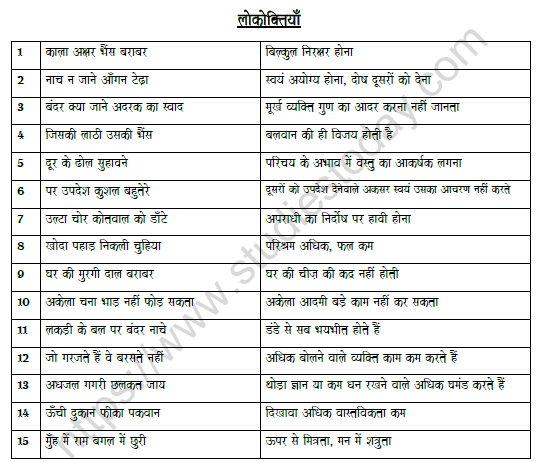 लोकोक्तियाँ
1 काला अक्षर भैंस बराबर बिल्कुल निरक्षर होना
2 नाच न जाने आँगन टेढ़ा स्वयं अयोग्य होना, दोष दूसरों को देना
3 बंदर क्या जाने अदरक का स्वाद मूर्ख व्यक्ति गुण का आदर करना नहीं जानता
4 जिसकी लाठी उसकी भैंस बलवान की ही विजय होती है
5 दूर के ढोल सुहावने परिचय के अभाव में वस्तु का आकर्षक लगना
6 पर उपदेश कुशल बहुतेरे दूसरों को उपदेश देनेवाले अकसर स्वयं उसका आचरण नहीं करते
7 उल्टा चोर कोतवाल को डाँटे अपराधी का निर्दोष पर हावी होना
8 खोदा पहाड़ निकली चुहिया परिश्रम अधिक, फल कम
9 घर की मुरगी दाल बराबर घर की चीज़ की कद्र नहीं होती
10 अकेला चना भाड़ नहीं फोड़ सकता अकेला आदमी बड़े काम नहीं कर सकता
11 लकड़ी के बल पर बंदर नाचे डंडे से सब भयभीत होते हैं
12 जो गरजते हैं वे बरसते नहीं अधिक बोलने वाले व्यक्ति काम कम करते हैं
13 अधजल गगरी छलकत जाय थोड़ा ज्ञान या कम धन रखने वाले अधिक घमंड करते हैं
14 ऊँची दुकान फीका पकवान दिखावा अधिक वास्तविकता कम
15 मुँह में राम बगल में छुरी ऊपर से मित्रता, मन में शत्रुता
https://www.studiestoday.com